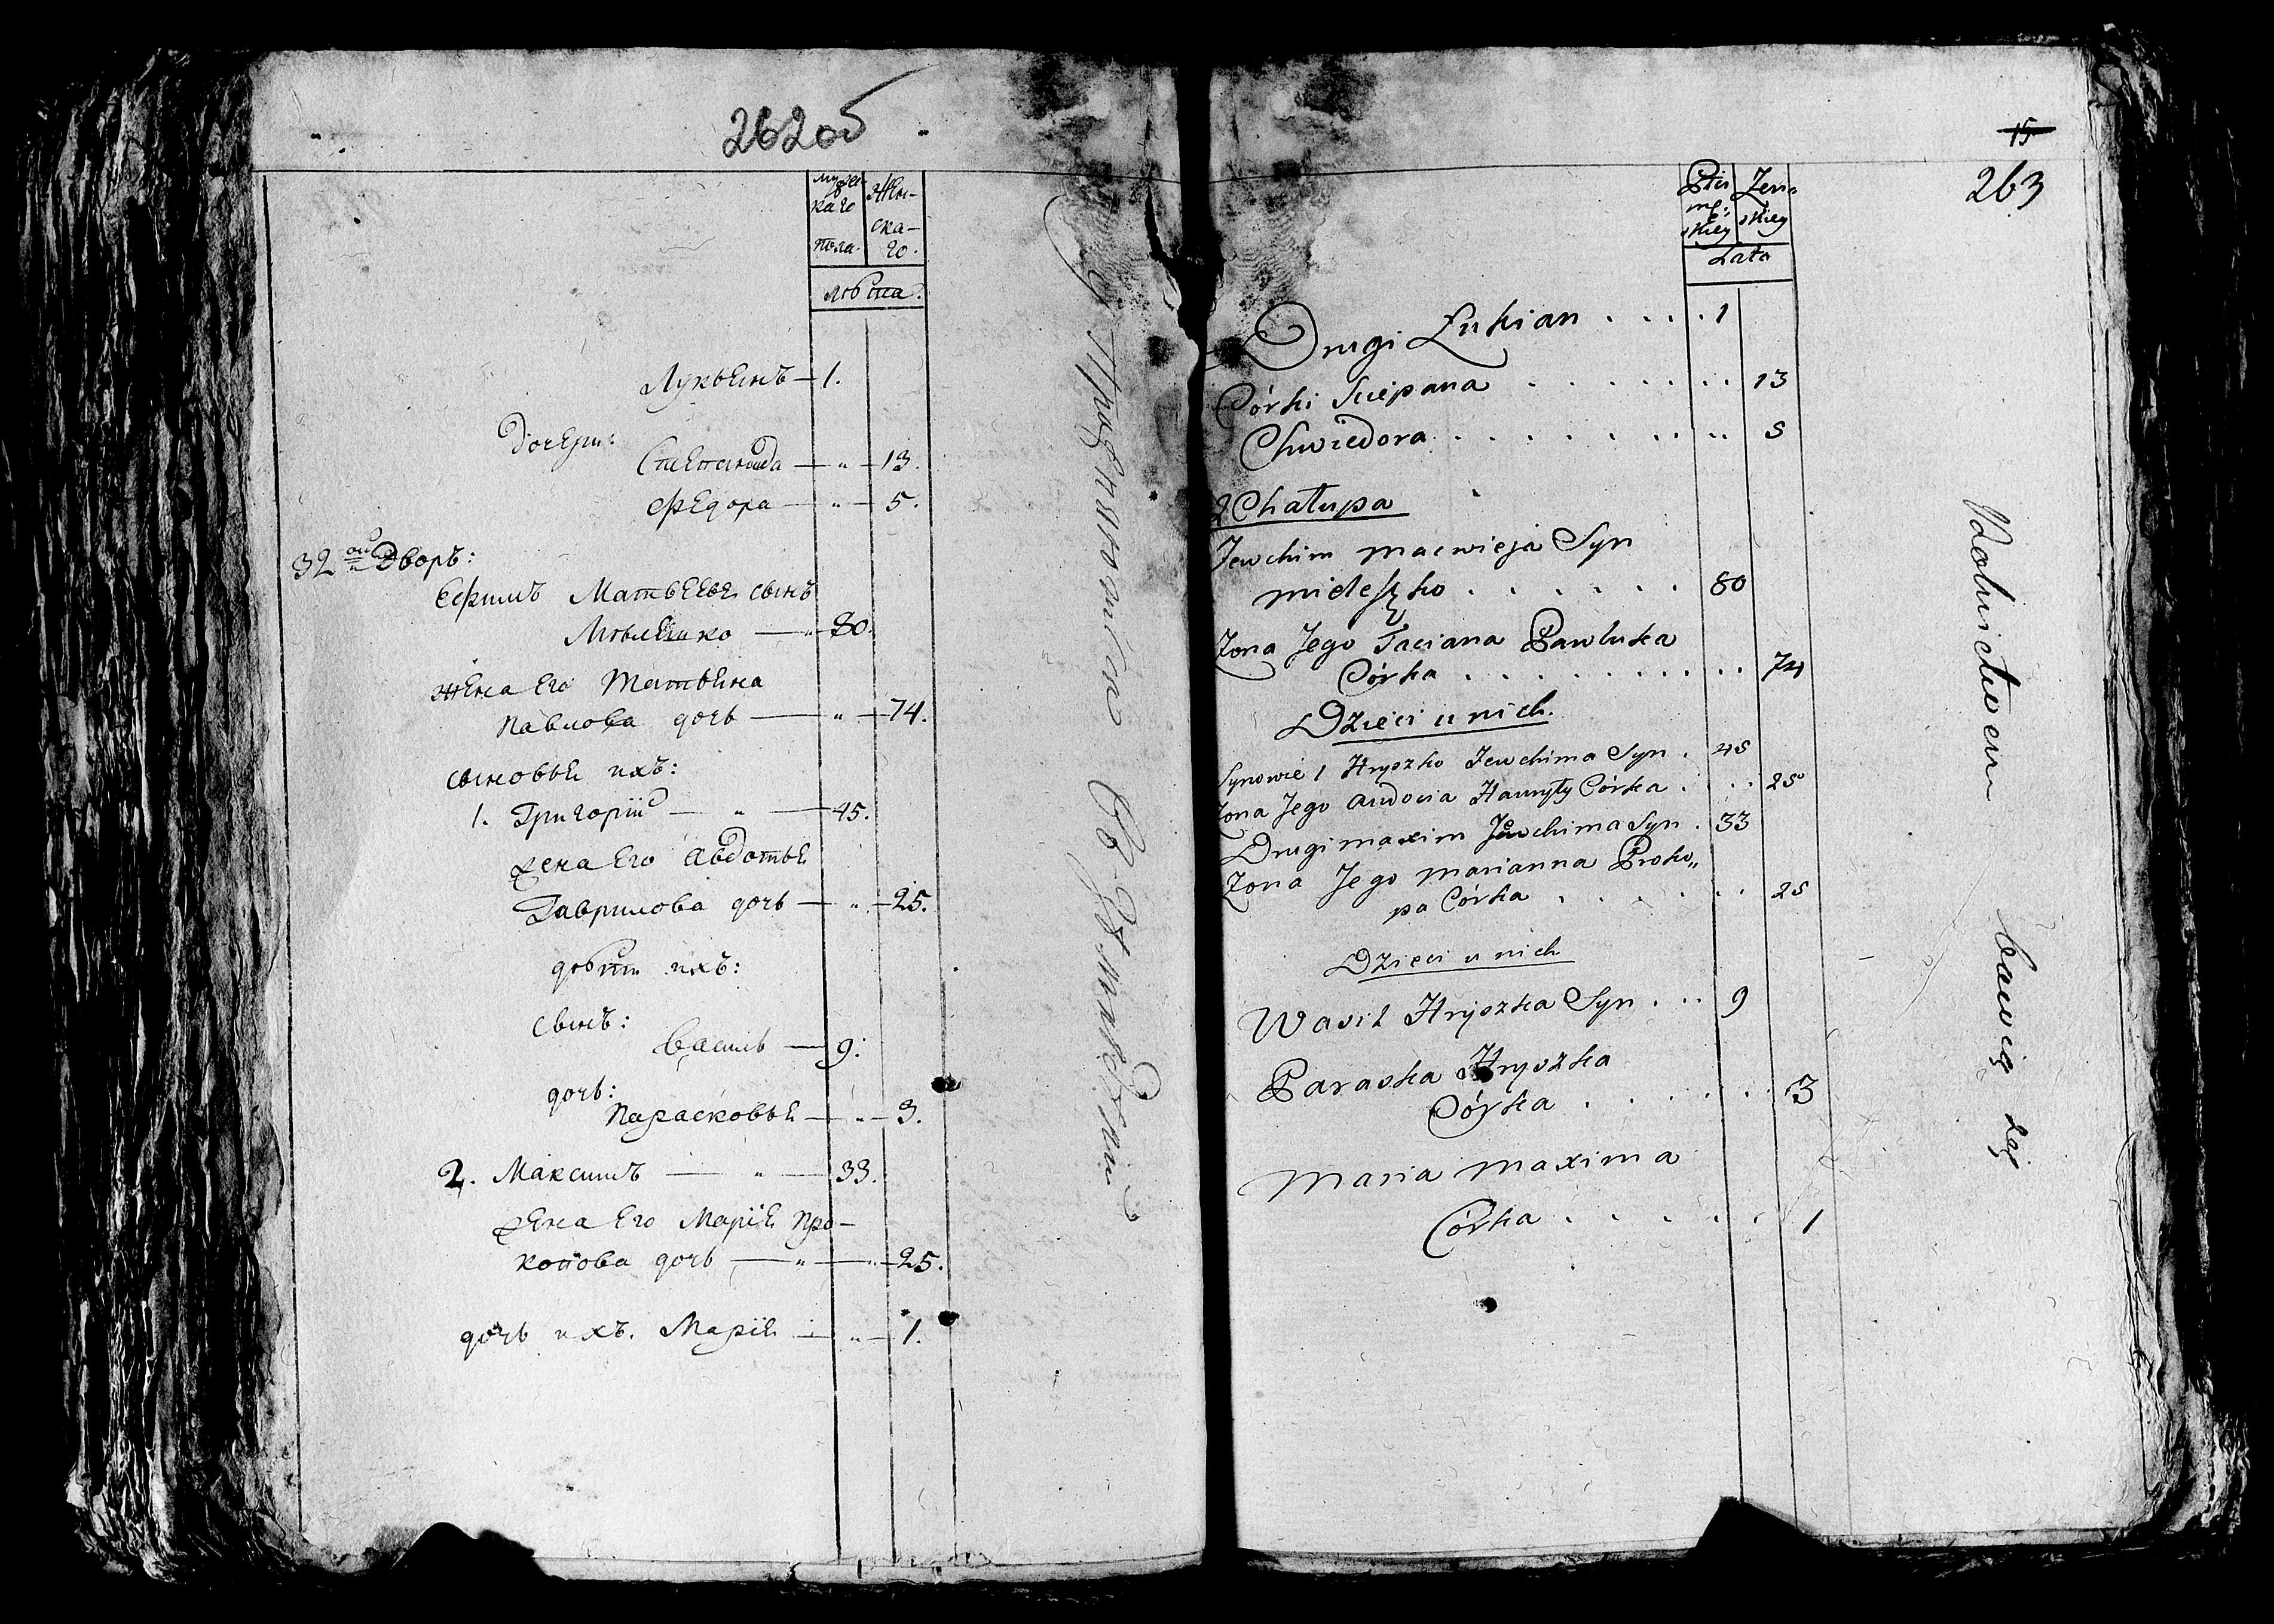 262об
мужес-
каго
пола.
жен-
ска-
го.
лѣта.
Лукьянъ — 1.
дочери:
Степанида — " — 13.
Федора — " — 5.
32ой Дворъ:
Ефимъ Матвѣевъ сынъ
Мѣлешко — " 80.
жена его Татьяна
Павлова дочь — " — 74.
сыновья ихъ:
1. Григорій — " — 45.
жена его Авдотья
Гаврилова дочь — " — 25.
дѣти ихъ:
сынъ:
Василь — 9.
дочь:
Парасковья — " — 3.
2. Максимъ — " — 33.
жена его Марія Про-
копова дочь — " — " — 25.
дочь ихъ. Марія — " — 1.
15
263
Płci
męz
skiey
Zen
skiey
Lata
Drugi Łukian . . . . 1
Córki Sciepana . . . . . . . . 13
Chwiedora . . . . . . . . . 5
2 Chałupa
Jewchim Macwieja Syn
Mieleszko . . . . . . 80
Zona Jego Taciana Pawluka
Córka . . . . . . . . . . 74
Dzieci u nich.
Synowie 1 Hryszko Jewchima Syn . 45
Zona Jego Audocia Hauryły Córka . . . 25
Drugi Maxim Jewchima Syn . 33
Zona Jego Marianna Proko„
pa Córka . . . . . . . 25
Dzieci u nich
Wasil Hryszka Syn . . . 9
Paraska Hryszka
Córka . . . . . . . 3
Maria Maxima
Córka . . . . . . 1